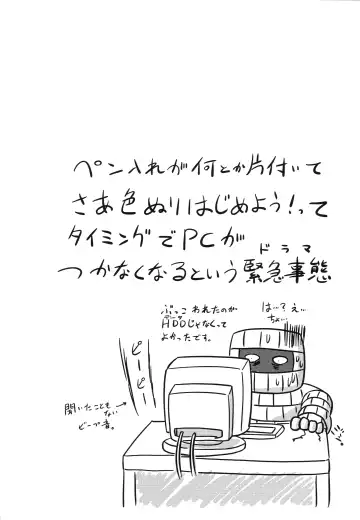 ペン入れが何とか片付いて
さあ色ぬりはじめよう!って
タイミングでPCが
ドラマ
つかなくなるという緊急事態
ぶっこわれたのが
HDDじゃなくって
よかったです。
は…てえ…
ちょ…
ピーピー
聞いたことも
ない
ビープ音。